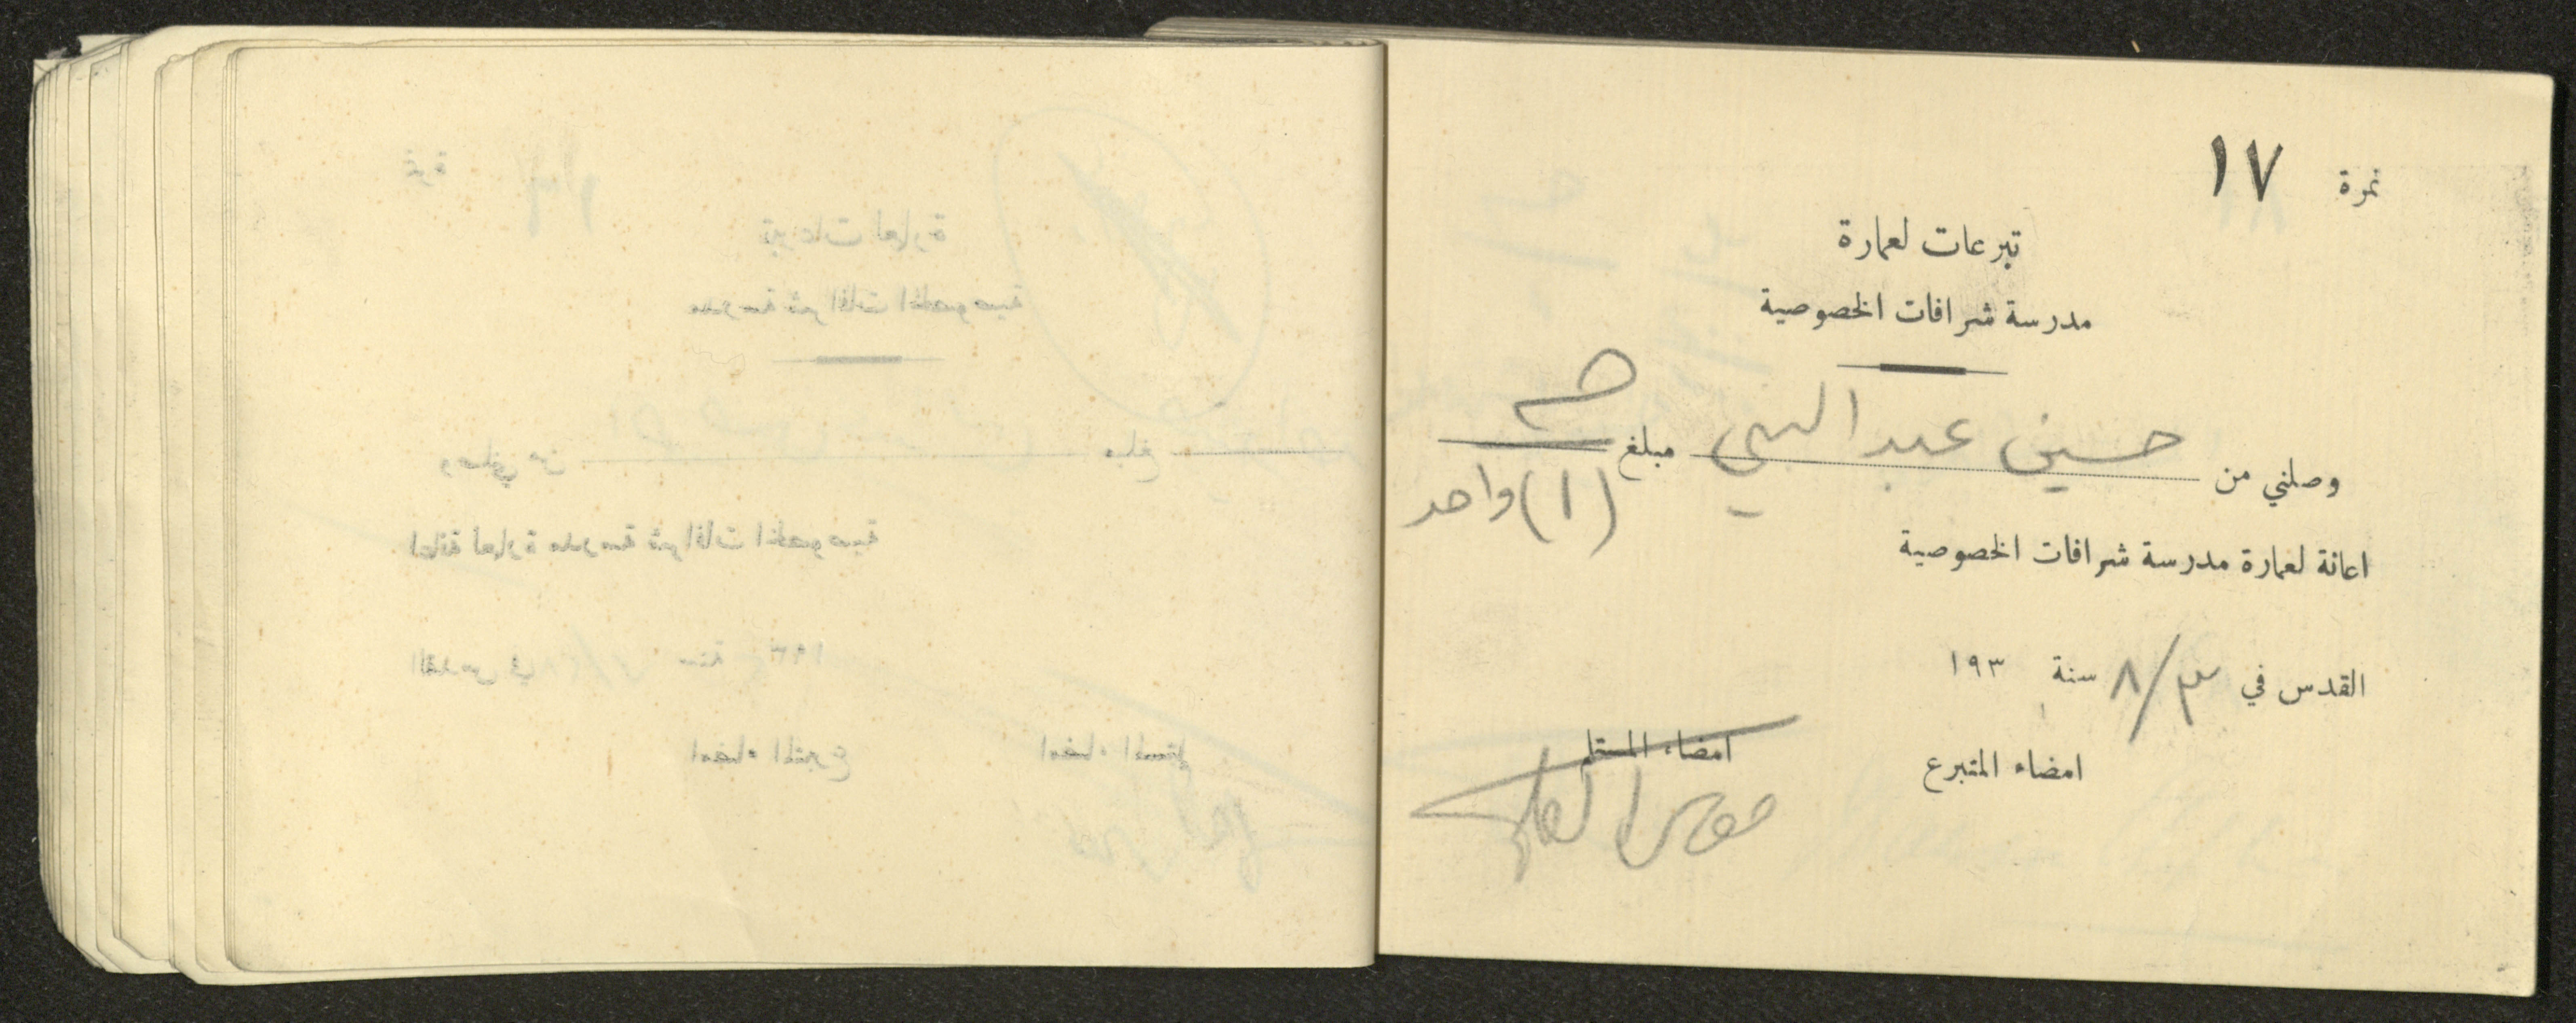 نمرة ١٧
تبرعات لعمارة
مدرسة شرافات الخصوصية
وصلني من حسين عبد النبي مبلغ
(١) واحد
اعانة لعمارة مدرسة شرافات الخصوصية
القدس في ٣/٨ سنة ١٩٣
امضاء المتبرع امضاء المستلم